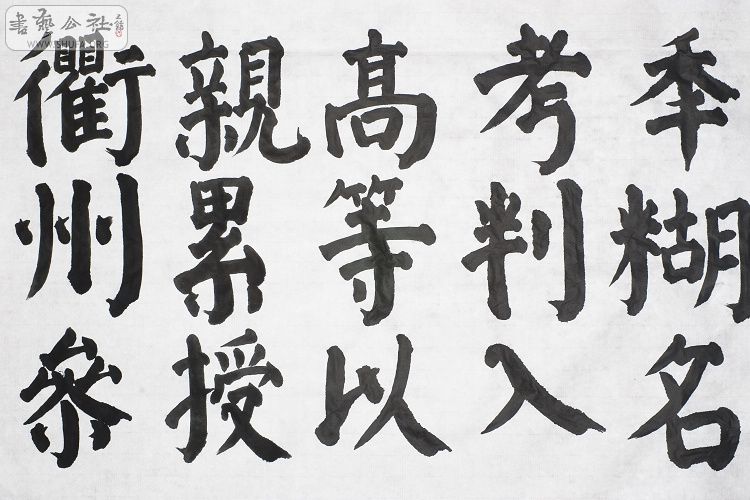 書藝公社
WWW.SHUFA.ORG
年糊名
考判入
高等以
親累授
衢州參